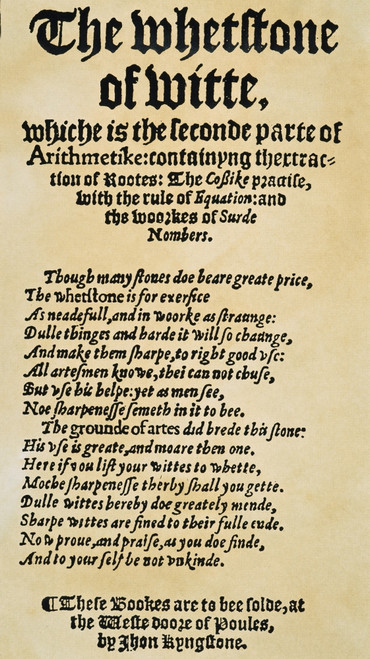 The whetstone
of witte,
whiche is the seconde parte of
Arithmetike: containyng thextrac-
tion of Rootes: The Coßike practise,
with the rule of Equation: and
the woorkes of Surde
Nombers.
Though many stones doe beare greate price,
The whetstone is for exersice
As neadefull, and in woorke as straunge:
Dulle thinges and harde it will so chaunge,
And make them sharpe, to right good vse:
All artesmen knowe, thei can not chuse,
But vse his helpe: yet as men see,
Noe sharpenesse semeth in it to bee.
The grounde of artes did brede this stone:
His vse is greate, and moare then one.
Here if you lift your wittes to whette,
Moche sharpenesse therby shall you gette.
Dulle wittes hereby doe greately mende,
Sharpe wittes are fined to their fulle ende.
Now proue, and praise, as you doe finde,
And to your self be not vnkinde.
¶ These Bookes are to bee solde, at
the Weste doore of Poules,
by Jhon Kyngstone.